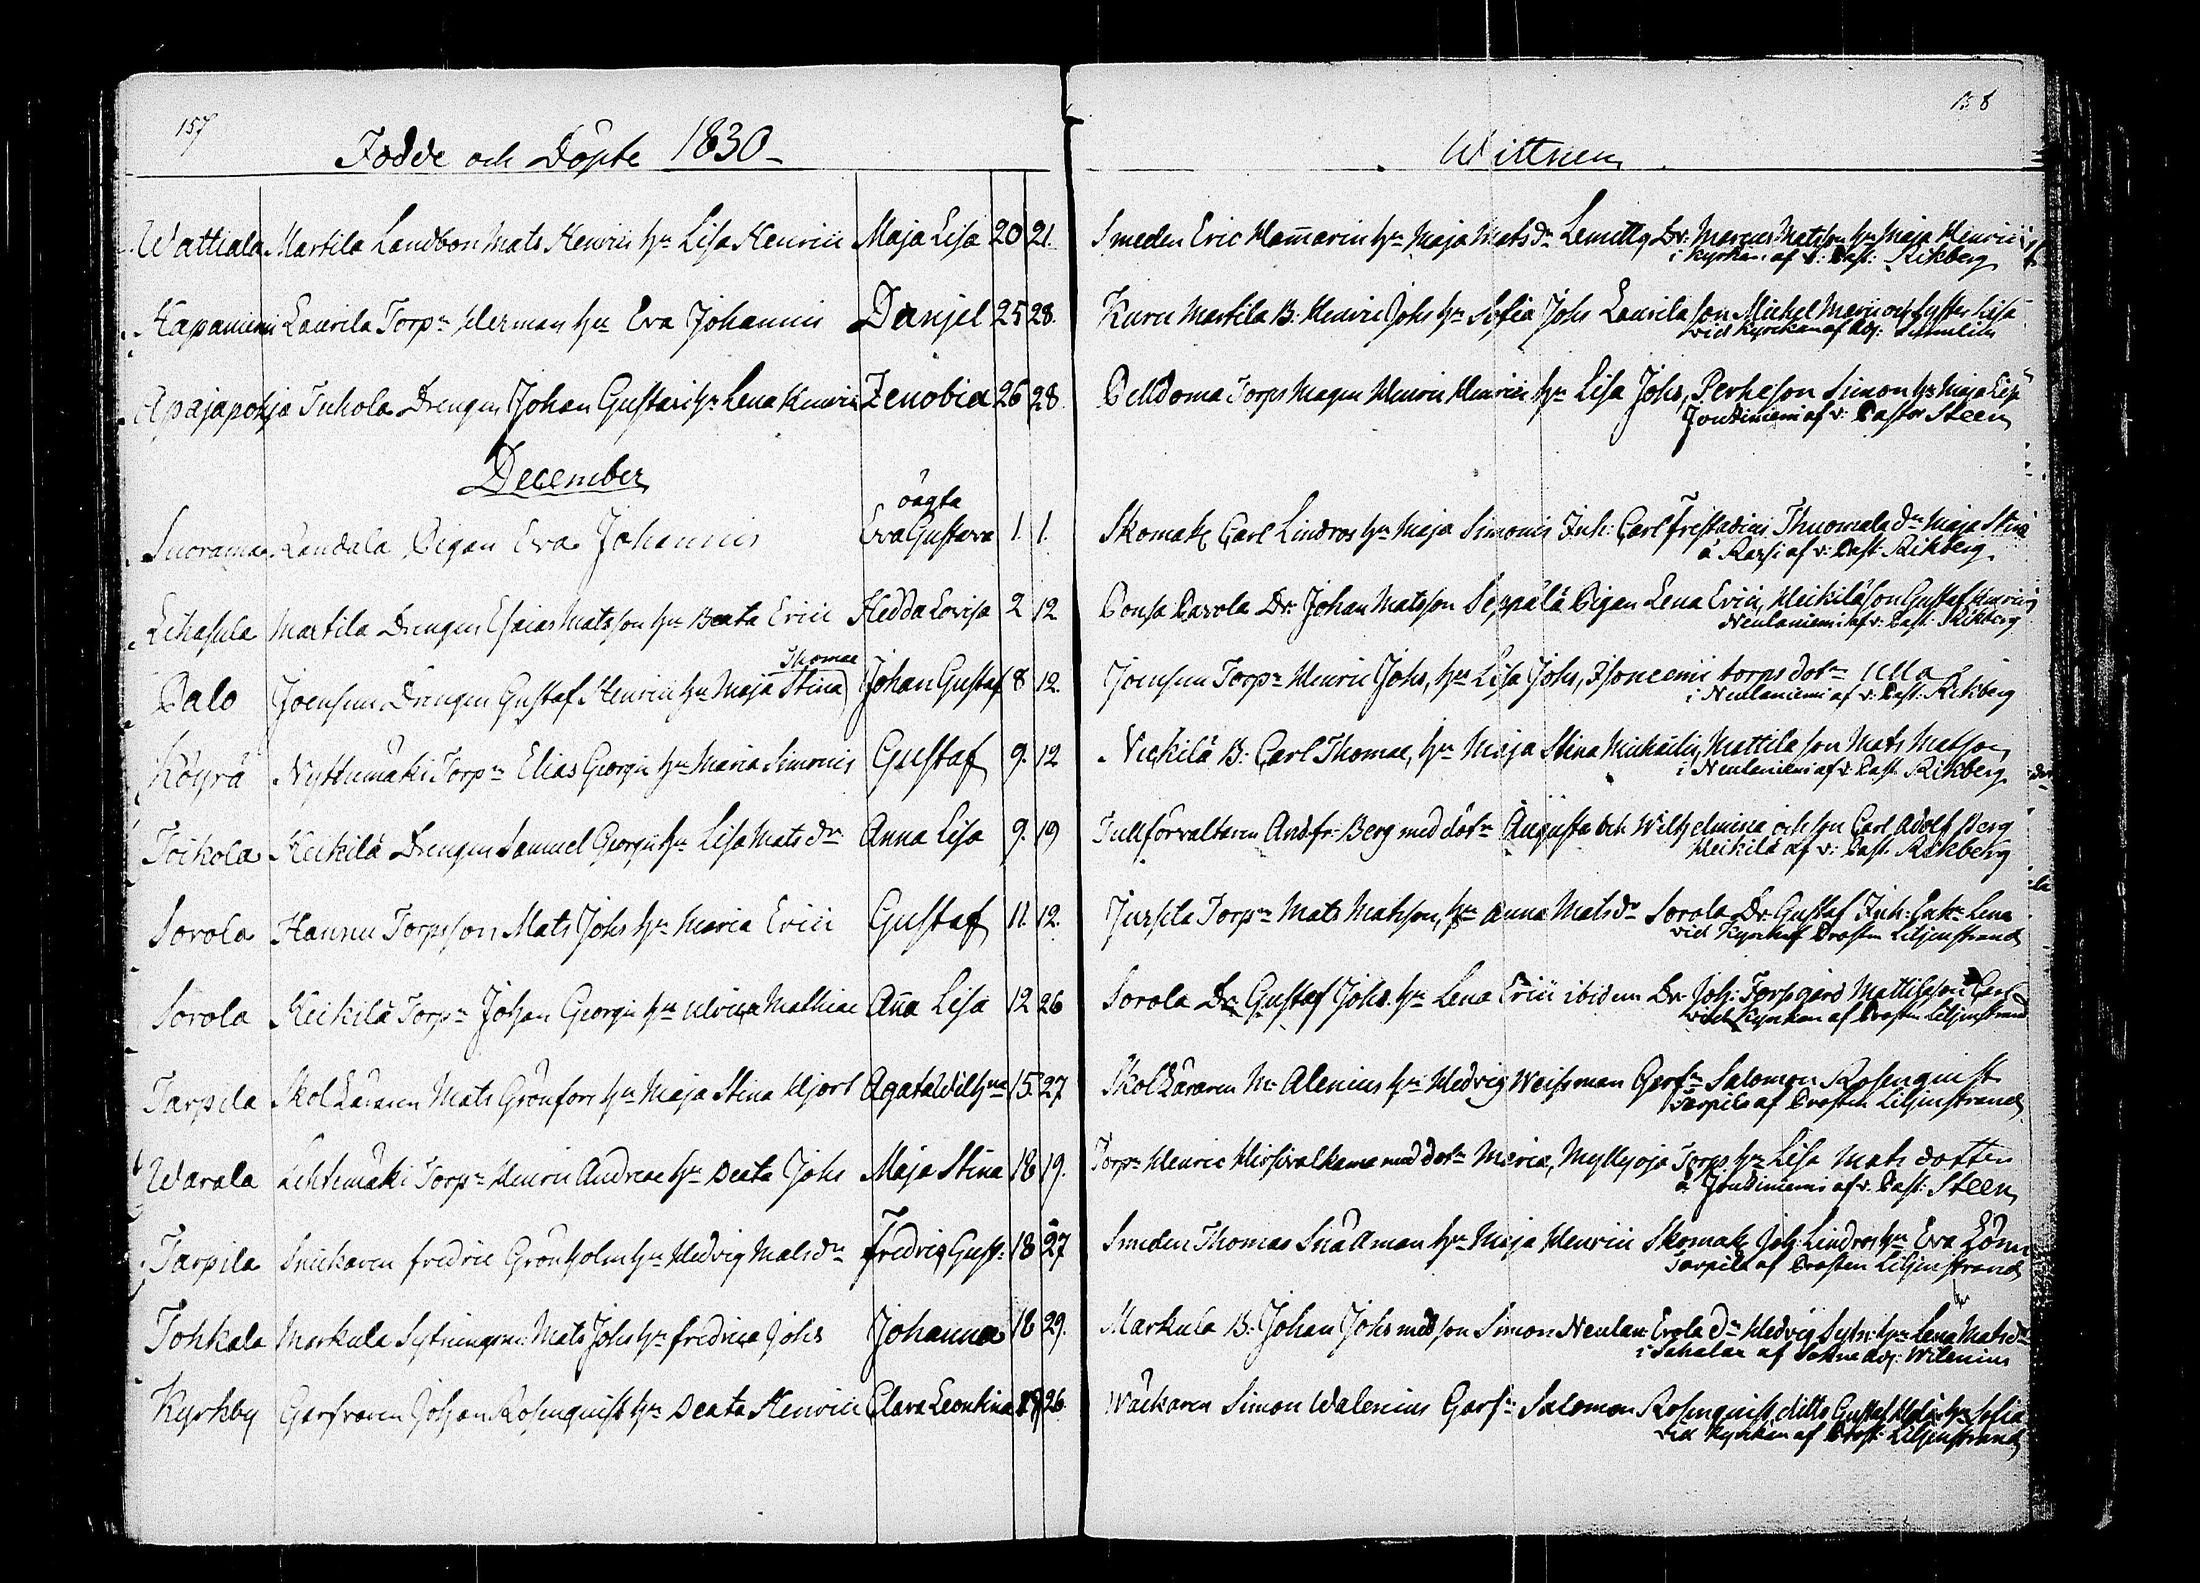 157
158
Födde och Döpte 1830
Wittnen
Wattiala Martila Landbon Mats Henrici hu Lisa Henrici Maja Lisa 20 21.
Smeden Eric Hamarin hu Maja Mats dr Lemetty Dr. Marcus Matsson hu Maja Henrici
i kyrkan af v: Past: Rikberg
Hapaniemi Laurila Torpn Herman hu Eva Johannis Danjel 25 28.
Martila B. Henric Johs hu Sofia Johs Laurila son Michel och Lisa
vid Kyrkan af Adj:
Apajapohja Juhola Drengen Johan Gustavi hu Lena Henrici Zenobia 26 28
Torps Magen Henric Henrici hu Lisa Johs, son Simon hu Maja Lisa
Joutsiniemi af v: Pastor Steen
December
oägta
Suorama Randala Pigan Eva Johannis Eva Gustava 1. 1.
Skomak Carl Lindros hu Maja Simonis Inh: Carl Frestadius Thuomala dr Maja Stina
å Rassi af v: Past: Rikberg.
Lihasula Martila Drengen Esaias Matsson hu Beata Erici Hedda Lovisa 2 12
Ponsa Parola Dr. Johan Matsson Seppälä Pigan Lena Erici, Heikilä son Gustaf Henrici
Neulaniemi af v: Past: Rikberg
Thomae
Palo Joensuu Drengen Gustaf Henrici hu Maja Stina Johan Gustaf 8 12.
Joensuu Torpn Henric Johs, hu Lisa Johs, Isoniemi torps dotr Ulla
i Neulaniemi af v: Past: Rikberg
Köyrä Nyttumäki Torpn Elias Georgii hu Maria Simonis Gustaf 9. 12
Nickilä B: Carl Thomae, hu Maja Stina Michaelis, Mattila son Mats Matsson,
i Neulaniemi af v: Past: Rikberg
Toikola Heikilä Drengen Samuel Georgii hu Lisa Mats dr Anna Lisa 9. 19
Tullförvaltaren And. fr: Berg med dötr Augusta och Wilhelmina och son Carl Adolf Berg
Heikilä af v: Past: Rikberg
Sorola Hannu Torpsson Mats Johs hu Maria Erici Gustaf 11. 12.
Jussila Torpn Mats Matsson, hu Anna Mats dr Sorola Dr. Gustaf Inh: Enk: Lena
vid Kyrkan af Prosten Liljenstrand
Sorola Heikilä Torpn Johan Georgii hu Ulrica Mathiae Aña Lisa 12 26
Sorola Dr. Gustaf Johs. hu Lena Erici ibidem Dr. Joh: Torpgård Mattila son Carl
vid Kyrkan af Prosten Liljenstrand
Tarpila SkolLäraren Mats Grönfors hu Maja Stina Hjort Agata Wilhna 15. 27
SkolLäraren Mr Alenius hu Hedvig Weissman Garfn Salomon Rosenquist
Tarpila af Prosten Liljenstrand
Warala Lehtimäki Torpn Henric Andreae hu Beata Johs Maja Stina 18 19.
Torpn Henric Hirsivalkama med dotr Maria, Myllyoja Torps hu Lisa Mats dotter
å Joutsiniemi af v. Past: Steen
Tarpila Snickaren Fredric Grönholm hu Hedvig Mats dr Fredriq Gust: 18 27
Smeden Thomas Snällman hu Maja Henrici Skomak Joh: Lindros hu Eva Lönn
Tarpila af Prosten Liljenstrand
Tohkala Markula Sytningsm. Mats Johs hu Fredrica Johs Johanna 18 29.
Markula B. Johan Johs med son Simon Neulan Erola dr Hedvig Sytn: hu Lena Mats dr
i Sahalax af Sokne Adj: Wilenius
Kyrkby Garfvaren Johan Rosenquist hu Beata Henrici Clara Leontina 19 26
Wäckaren Simon Walenius Garfn Salomon Rosenquist, ditto Gustaf hu Sofia
vid Kyrkan af Prost: Liljenstrand